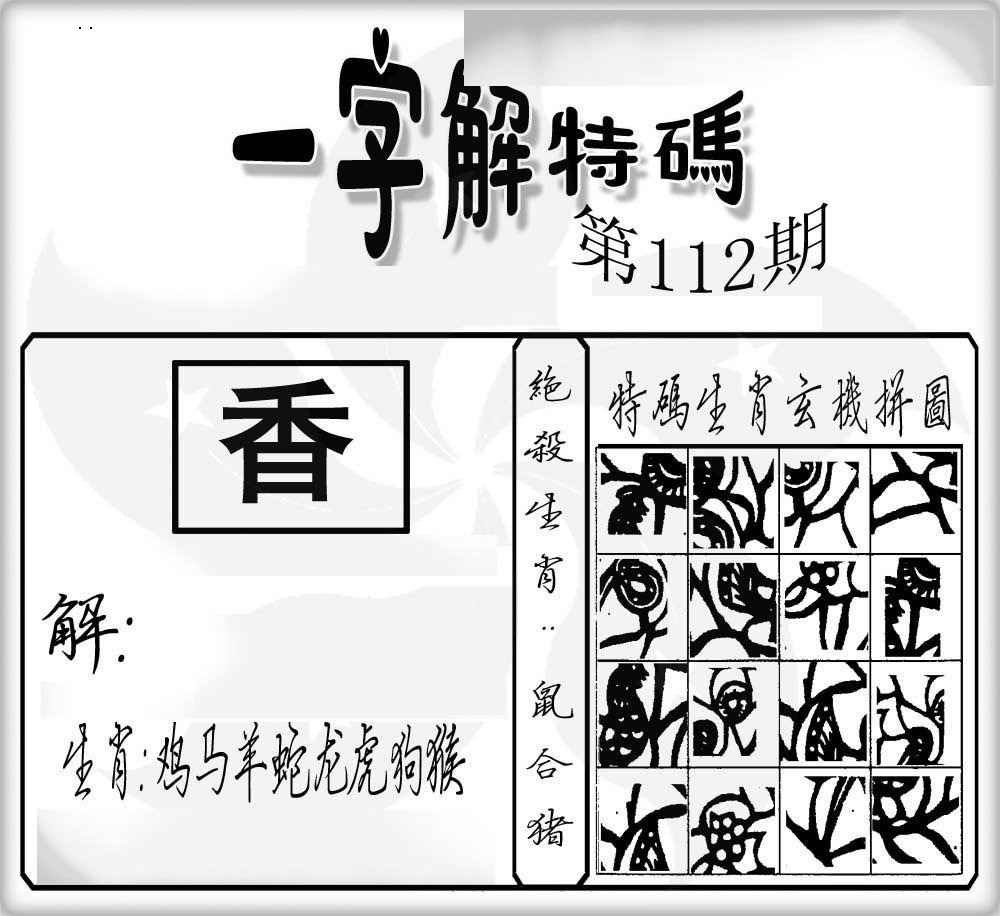 一字解特碼
第112期
香
解:
生肖:鸡马羊蛇龙虎狗猴
絶殺生肖:鼠合猪
特碼生肖玄機拼圖